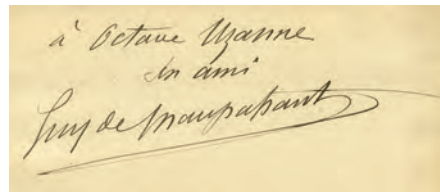 à Octave Uzanne
un ami
Guy de Maupassant